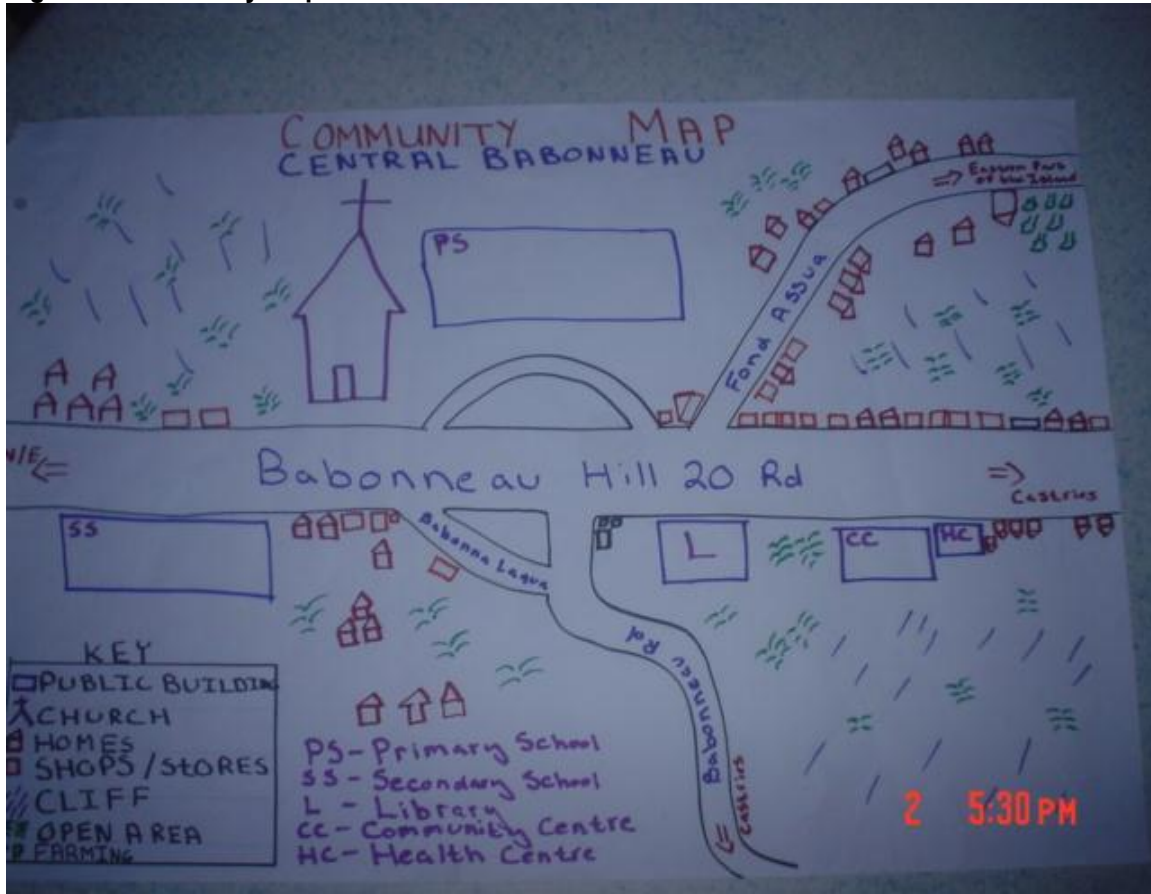 COMMUNITY MAP
CENTRAL BABONNEAU
PS
Eastern Part
of the Island
Fond Assua
Babonneau Hill 20 Rd
Castries
SS
Babonna Laqua
L
CC
HC
Babonneau Rd
Castries
KEY
PUBLIC BUILDING
CHURCH
HOMES
SHOPS/STORES
CLIFF
OPEN AREA
FARMING
PS - Primary School
SS - Secondary School
L - Library
CC - Community Centre
HC - Health Centre
2 5:30 PM